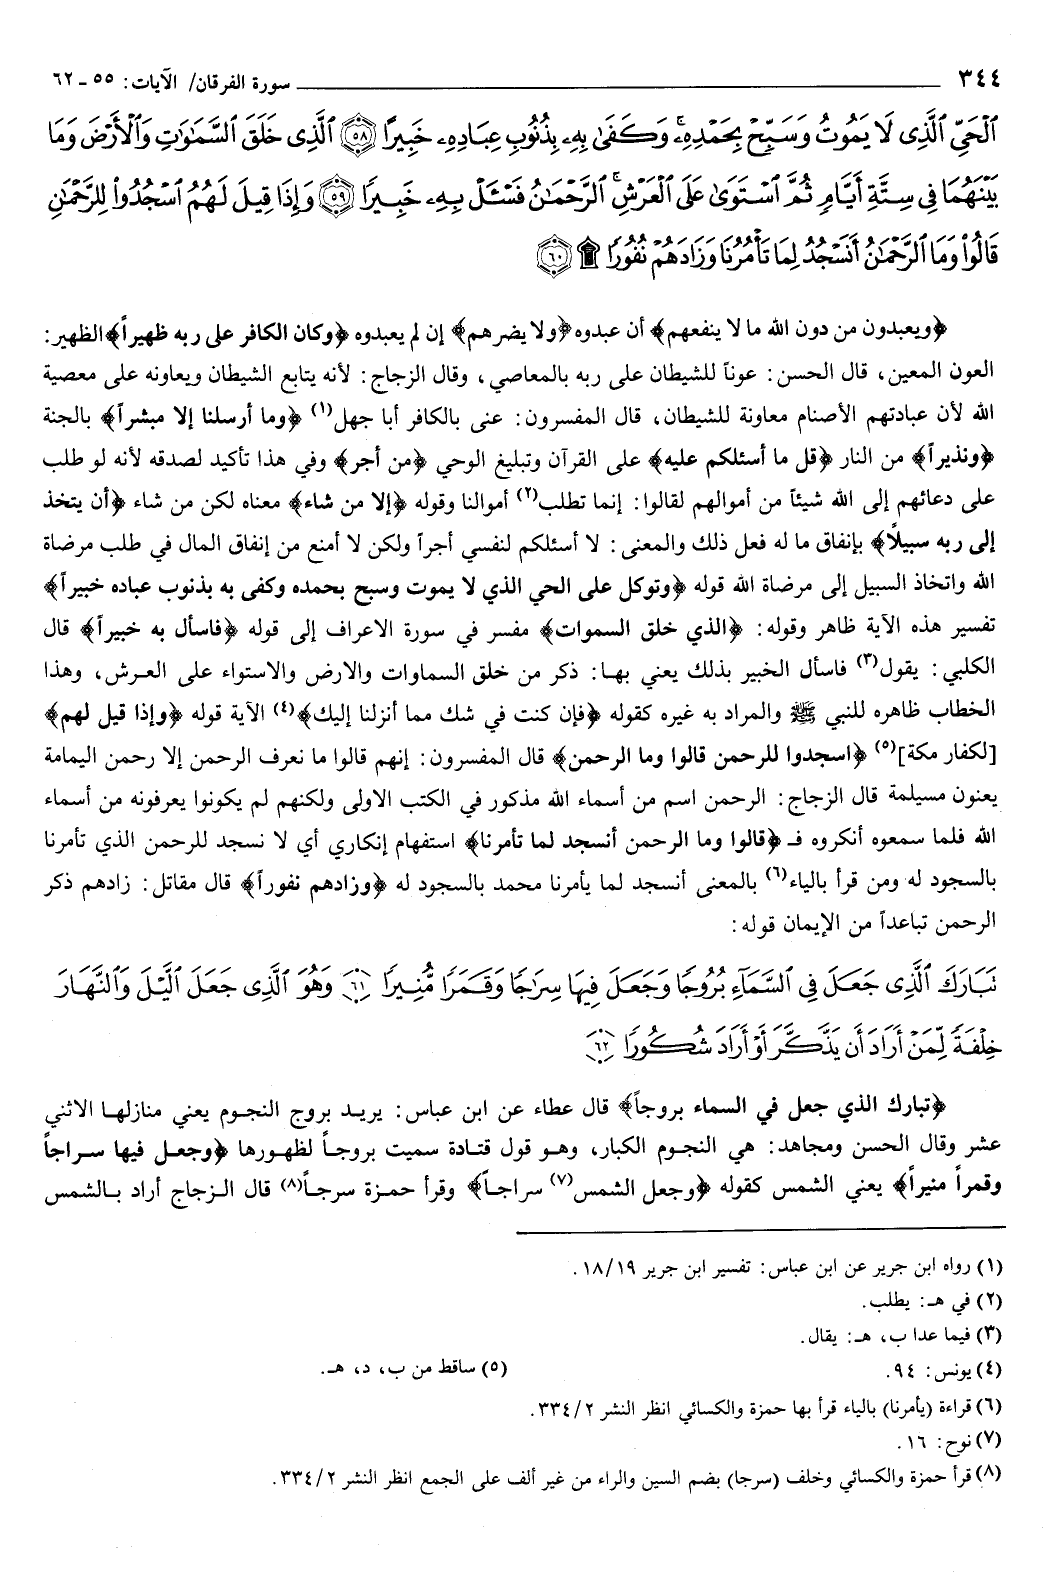 ٣٤٤ سورة الفرقان/ الآيات: ٥٥ - ٦٢
ٱلْحَيِّ ٱلَّذِى لَا يَمُوتُ وَسَبِّحْ بِحَمْدِهِۦ ۚ وَكَفَىٰ بِهِۦ بِذُنُوبِ عِبَادِهِۦ خَبِيرًا ﴿٥٨﴾ ٱلَّذِى خَلَقَ ٱلسَّمَـٰوَٰتِ وَٱلْأَرْضَ وَمَا
بَيْنَهُمَا فِى سِتَّةِ أَيَّامٍ ثُمَّ ٱسْتَوَىٰ عَلَى ٱلْعَرْشِ ۚ ٱلرَّحْمَـٰنُ فَسْـَٔلْ بِهِۦ خَبِيرًا ﴿٥٩﴾ وَإِذَا قِيلَ لَهُمُ ٱسْجُدُوا۟ لِلرَّحْمَـٰنِ
قَالُوا۟ وَمَا ٱلرَّحْمَـٰنُ أَنَسْجُدُ لِمَا تَأْمُرُنَا وَزَادَهُمْ نُفُورًا ۩ ﴿٦٠﴾
﴿ويعبدون من دون الله ما لا ينفعهم﴾ أن عبدوه ﴿ولا يضرهم﴾ إن لم يعبدوه ﴿وكان الكافر على ربه ظهيراً﴾ الظهير:
العون المعين، قال الحسن: عوناً للشيطان على ربه بالمعاصي، وقال الزجاج: لأنه يتابع الشيطان ويعاونه على معصية
الله لأن عبادتهم الأصنام معاونة للشيطان، قال المفسرون: عنى بالكافر أبا جهل(١) ﴿وما أرسلنا إلا مبشراً﴾ بالجنة
﴿ونذيراً﴾ من النار ﴿قل ما أسئلكم عليه﴾ على القرآن وتبليغ الوحي ﴿من أجر﴾ وفي هذا تأكيد لصدقه لأنه لو طلب
على دعائهم إلى الله شيئاً من أموالهم لقالوا: إنما تطلب(٢) أموالنا وقوله ﴿إلا من شاء﴾ معناه لكن من شاء ﴿أن يتخذ
إلى ربه سبيلاً﴾ بإنفاق ما له فعل ذلك والمعنى: لا أسئلكم لنفسي أجراً ولكن لا أمنع من إنفاق المال في طلب مرضاة
الله واتخاذ السبيل إلى مرضاة الله قوله ﴿وتوكل على الحي الذي لا يموت وسبح بحمده وكفى به بذنوب عباده خبيراً﴾
تفسير هذه الآية ظاهر وقوله: ﴿الذي خلق السموات﴾ مفسر في سورة الاعراف إلى قوله ﴿فاسأل به خبيراً﴾ قال
الكلبي: يقول(٣) فاسأل الخبير بذلك يعني بهـا: ذكر من خلق السماوات والارض والاستواء على العـرش، وهذا
الخطاب ظاهره للنبي ﷺ والمراد به غيره كقوله ﴿فإن كنت في شك مما أنزلنا إليك﴾(٤) الآية قوله ﴿وإذا قيل لهم﴾
[لكفار مكة](٥) ﴿اسجدوا للرحمن قالوا وما الرحمن﴾ قال المفسرون: إنهم قالوا ما نعرف الرحمن إلا رحمن اليمامة
يعنون مسيلمة قال الزجاج: الرحمن اسم من أسماء الله مذكور في الكتب الاولى ولكنهم لم يكونوا يعرفونه من أسماء
الله فلما سمعوه أنكروه فـ ﴿قالوا وما الرحمن أنسجد لما تأمرنا﴾ استفهام إنكاري أي لا نسجد للرحمن الذي تأمرنا
بالسجود له ومن قرأ بالياء(٦) بالمعنى أنسجد لما يأمرنا محمد بالسجود له ﴿وزادهم نفوراً﴾ قال مقاتل: زادهم ذكر
الرحمن تباعداً من الإيمان قوله:
تَبَارَكَ ٱلَّذِى جَعَلَ فِى ٱلسَّمَآءِ بُرُوجًا وَجَعَلَ فِيهَا سِرَٰجًا وَقَمَرًا مُّنِيرًا ﴿٦١﴾ وَهُوَ ٱلَّذِى جَعَلَ ٱلَّيْلَ وَٱلنَّهَارَ
خِلْفَةً لِّمَنْ أَرَادَ أَن يَذَّكَّرَ أَوْ أَرَادَ شُكُورًا ﴿٦٢﴾
﴿تبارك الذي جعل في السماء بروجاً﴾ قال عطاء عن ابن عباس: يريـد بروج النجـوم يعني منازلهـا الاثني
عشر وقال الحسن ومجاهد: هي النجـوم الكبار، وهـو قول قتـادة سميت بروجـاً لظهـورها ﴿وجعـل فيها سـراجاً
وقمراً منيراً﴾ يعني الشمس كقوله ﴿وجعل الشمس(٧) سراجـاً﴾ وقرأ حمـزة سرجـاً(٨) قال الـزجاج أراد بـالشمس
(١) رواه ابن جرير عن ابن عباس: تفسير ابن جرير ١٨/١٩.
(٢) في هـ: يطلب.
(٣) فيما عدا ب، هـ: يقال.
(٤) يونس: ٩٤. (٥) ساقط من ب، د، هـ.
(٦) قراءة (يأمرنا) بالياء قرأ بها حمزة والكسائي انظر النشر ٣٣٤/٢.
(٧) نوح: ١٦.
(٨) قرأ حمزة والكسائي وخلف (سرجا) بضم السين والراء من غير ألف على الجمع انظر النشر ٣٣٤/٢.